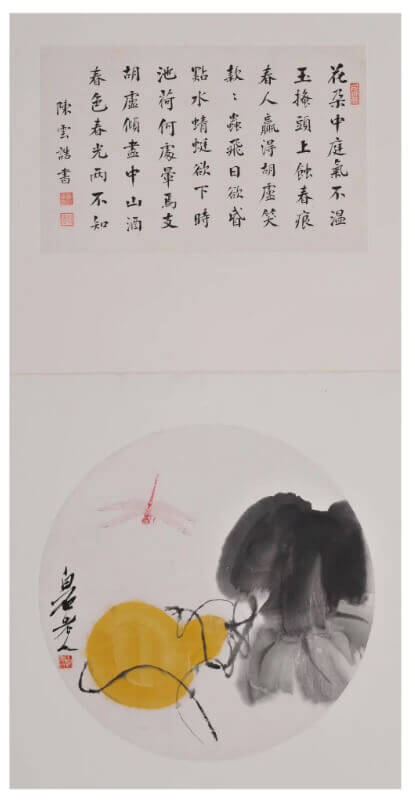 花朵中庭氣不溫
玉搔頭上蝕春痕
春人贏得胡盧笑
款〻蟲飛日欲昏
點水蜻蜓欲下時
池荷何處暈焉支
胡盧傾盡中山酒
春色春光兩不知
陳雲誥書
白石老人